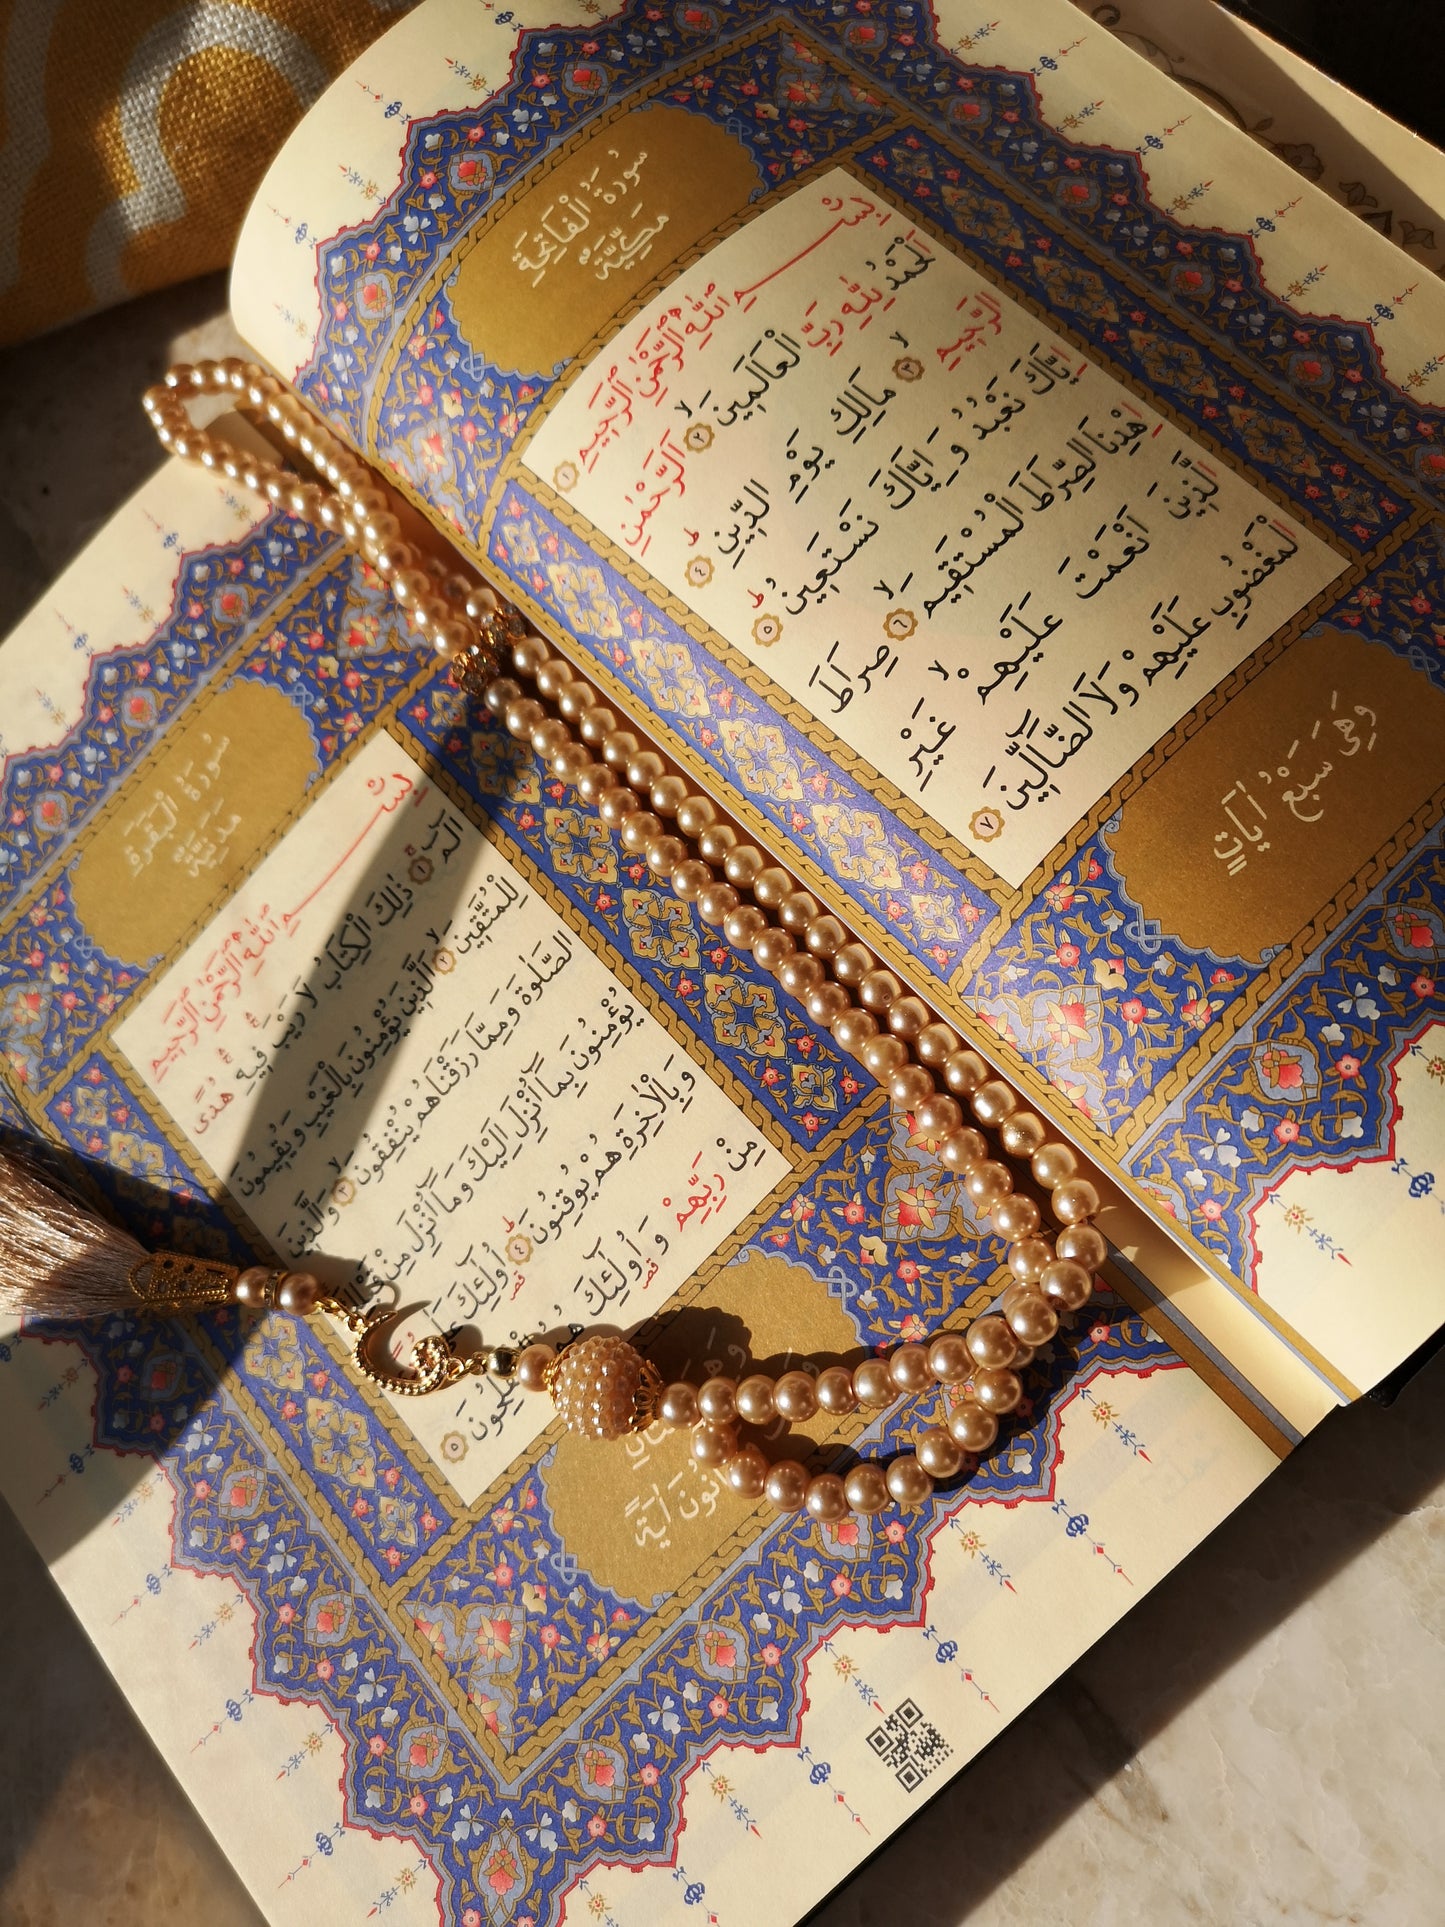 سُورَةُ الْفَاتِحَةِ
مَكِّيَّةٌ
بِسْمِ اللّٰهِ الرَّحْمٰنِ الرَّحِيمِ ﴿١﴾
اَلْحَمْدُ لِلّٰهِ رَبِّ الْعَالَمِينَۙ ﴿٢﴾ اَلرَّحْمٰنِ
الرَّحِيمِۙ ﴿٣﴾ مَالِكِ يَوْمِ الدِّينِۜ ﴿٤﴾
اِيَّاكَ نَعْبُدُ وَاِيَّاكَ نَسْتَعِينُۜ ﴿٥﴾
اِهْدِنَا الصِّرَاطَ الْمُسْتَقِيمَۙ ﴿٦﴾ صِرَاطَ
الَّذِينَ اَنْعَمْتَ عَلَيْهِمْۙ غَيْرِ
الْمَغْضُوبِ عَلَيْهِمْ وَلَا الضَّٓالِّينَ ﴿٧﴾
وَهِيَ سَبْعُ اٰيَاتٍ
سُورَةُ الْبَقَرَةِ
مَدَنِيَّةٌ
بِسْمِ اللّٰهِ الرَّحْمٰنِ الرَّحِيمِ
الٓمٓۚ ﴿١﴾ ذٰلِكَ الْكِتَابُ لَا رَيْبَۚۛ فِيهِۚۛ هُدًى
لِلْمُتَّقِينَۙ ﴿٢﴾ اَلَّذِينَ يُؤْمِنُونَ بِالْغَيْبِ وَيُقِيمُونَ
الصَّلٰوةَ وَمِمَّا رَزَقْنَاهُمْ يُنْفِقُونَۙ ﴿٣﴾ وَالَّذِينَ
يُؤْمِنُونَ بِمَٓا اُنْزِلَ اِلَيْكَ وَمَٓا اُنْزِلَ مِنْ
وَبِالْاٰخِرَةِ هُمْ يُوقِنُونَۜ ﴿٤﴾ اُو۬لٰٓئِكَ
مِنْ رَبِّهِمْ وَاُو۬لٰٓئِكَ
﴿٥﴾
اٰيَةً